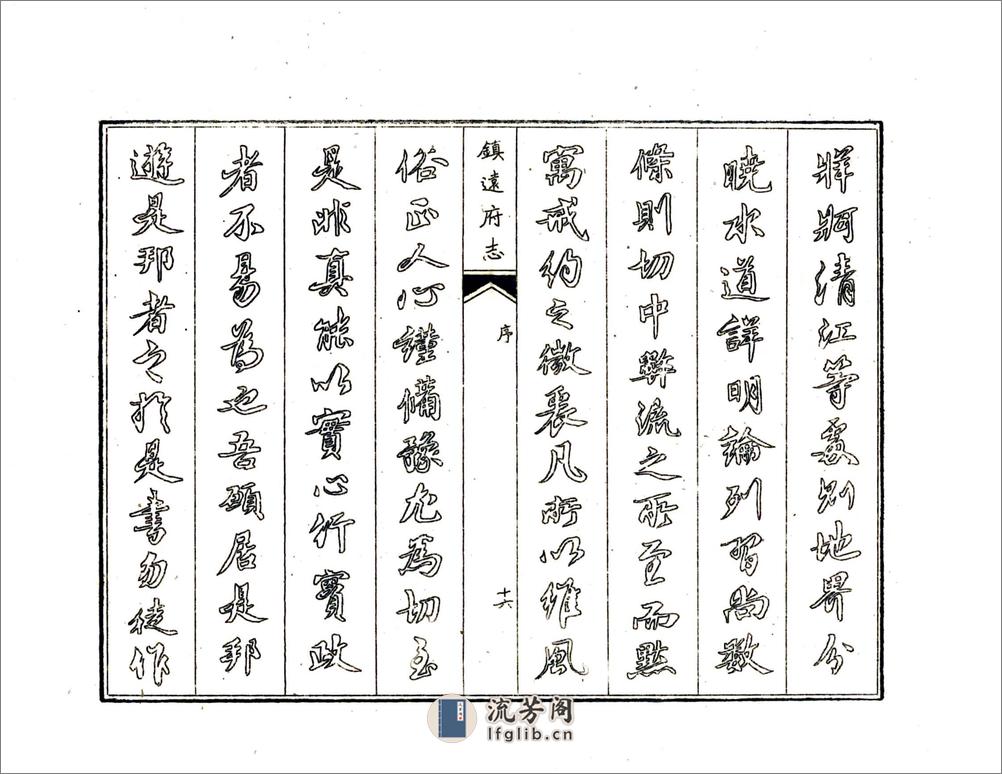 牂牁清江等處則地畀分
曉水道詳明論列習尚數
條則切中弊流之所至而黙
寓戒約之微衷凡所以維風
鎮遠府志
序
十六
俗正人心謹備豫尤為切至
是非真能以實心行實政
者不易為也吾願居是邦
遊是邦者之於是書勿徒作
流芳阁
lfglib.cn